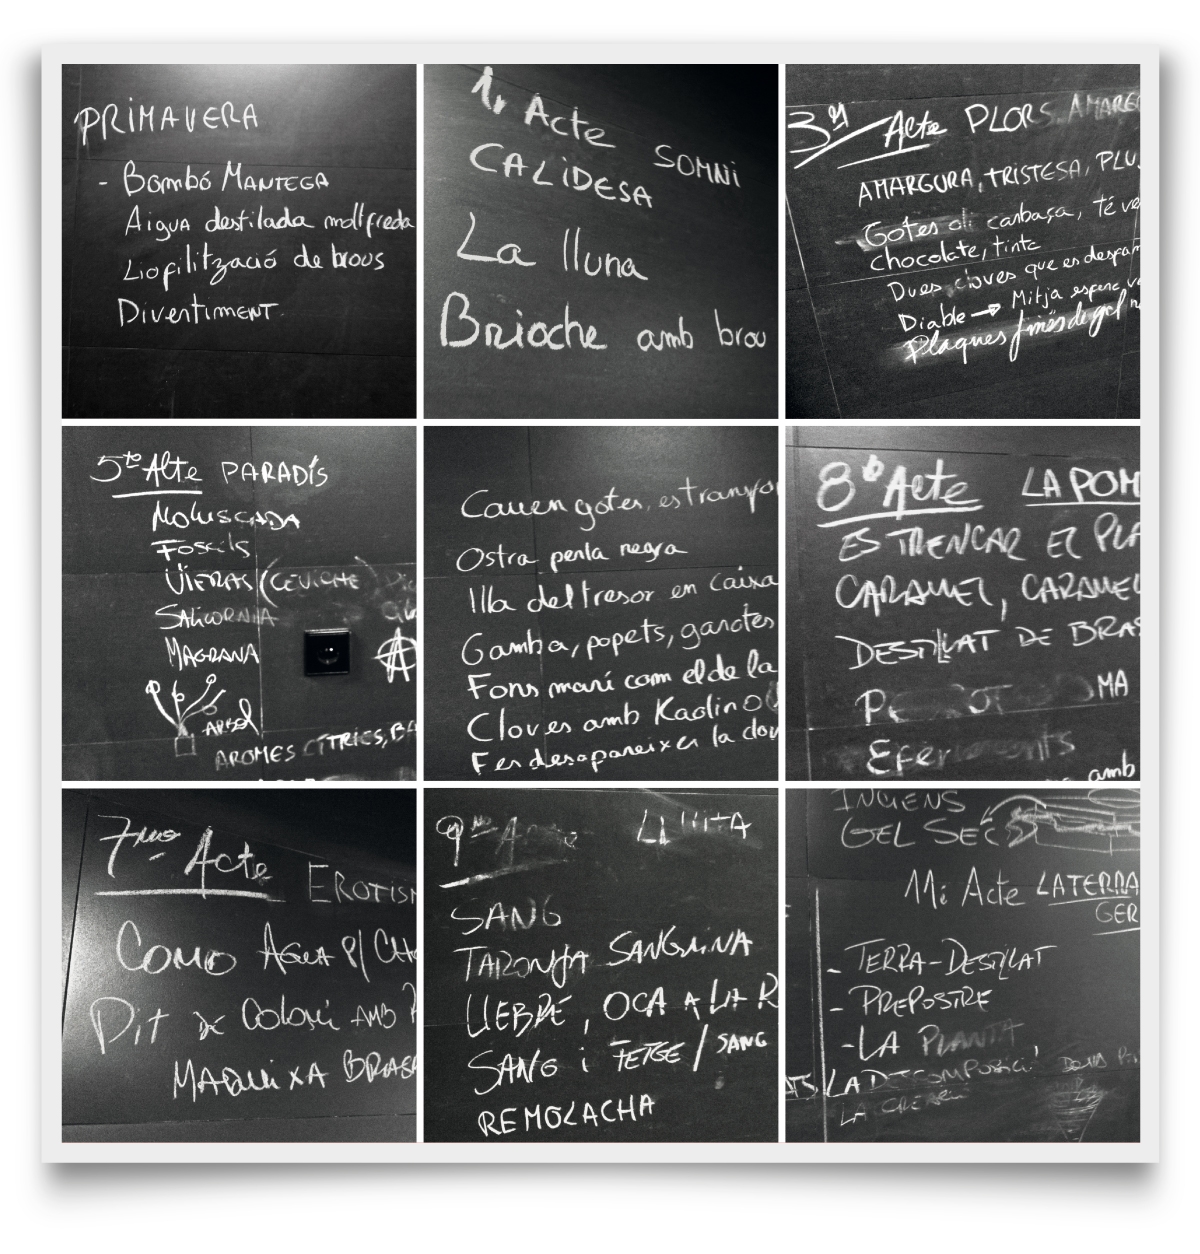 PRIMAVERA
- Bombó MANTEGA
Aigua destilada molt freda
Liofilització de brous
Divertiment.
1r Acte SOMNI
CALIDESA
La lluna
Brioche amb brou
3er Acte PLORS, AMARG
AMARGURA, TRISTESA, PLU
Gotes oli carbaça, té ve
chocolate, tinte
Dues cloves que es despam
Diable → Mitja espera
Plaques fines de gel
5to Acte PARADÍS
MOLUSCADA
FOSSILS
VIEIRAS (CEVICHE)
SALICORNIA
MAGRANA
ARBOL
AROMES CÍTRICS, BA
Cauen gotes, es transfo
Ostra perla negra
Illa del tresor en caixa
Gamba, popets, garotes
Fons marí com el de la
Cloves amb Kaolin
Fer desapareixer la clov
8º Acte LA POM
ES TRENCAR EL PLA
CARAMEL, CARAMEL
DESTIL·LAT DE BRAS
MA
Efervescents
amb
7mo Acte EROTISM
COMO AGUA P/ CHO
DIT DE COLORS AMB
MADUIXA BRASA
9no Acte LLUITA
SANG
TARONJA SANGUINA
LLEBRE, OCA A LA R
SANG i FETGE / SANG
REMOLACHA
INCIENS
GEL SEC
11i Acte LA TERRA
GER
- TERRA-DESTIL·LAT
- PREPOSTRE
- LA PLANTA
LA DECOMPOSICIÓ DONA